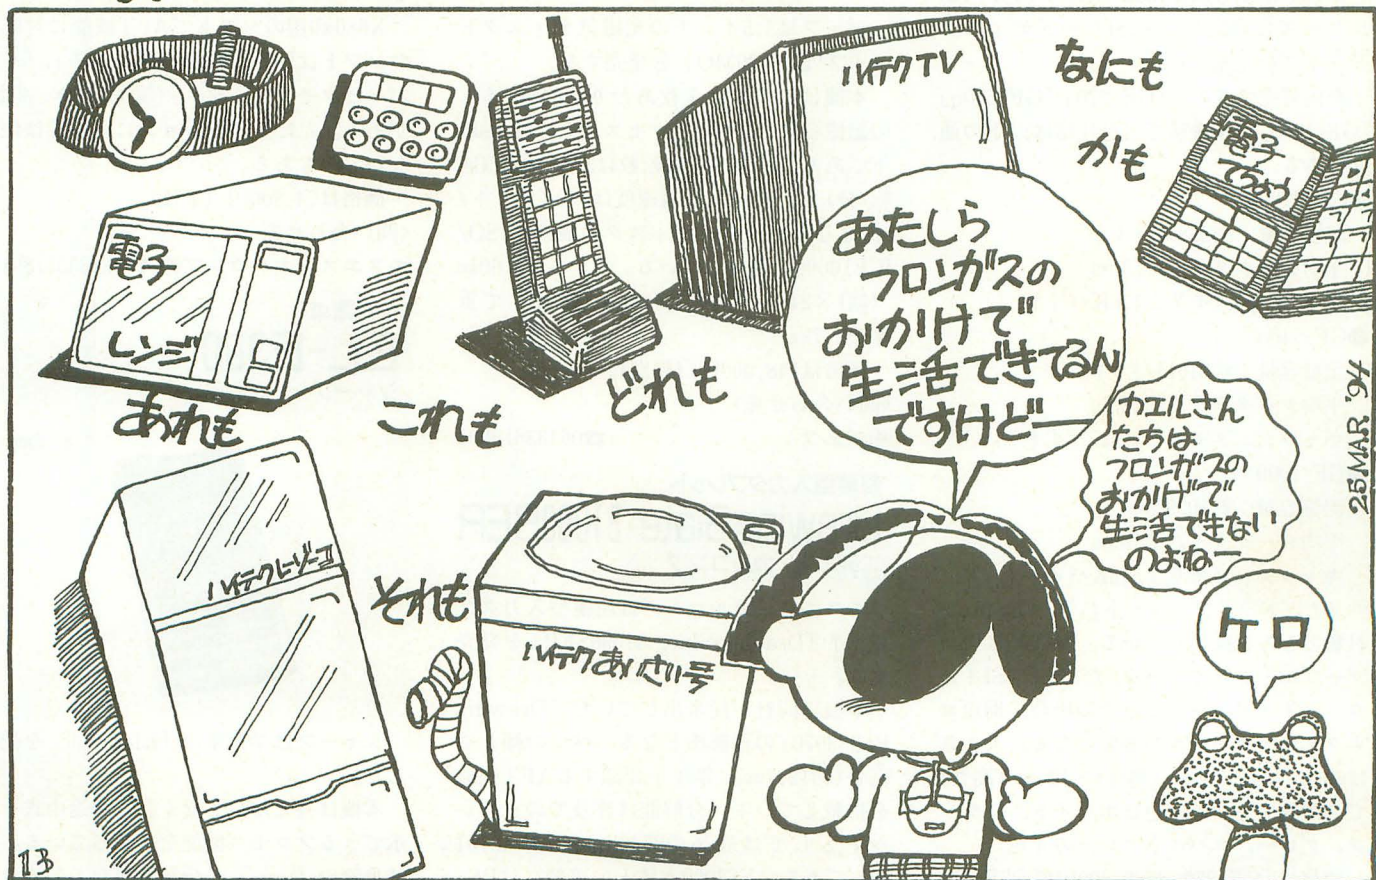 ハイテクTV
なにも
かも
電子
てちょう
電子
レンジ
あれも
これも
どれも
あたしら
フロンガスの
おかげで
生活できてるん
ですけどー
カエルさん
たちは
フロンガスの
おかげで
生活できない
のよねー
25MAR '94
ハイテクレーゾーコ
それも
ハイテクあいさい号
ケロ
13